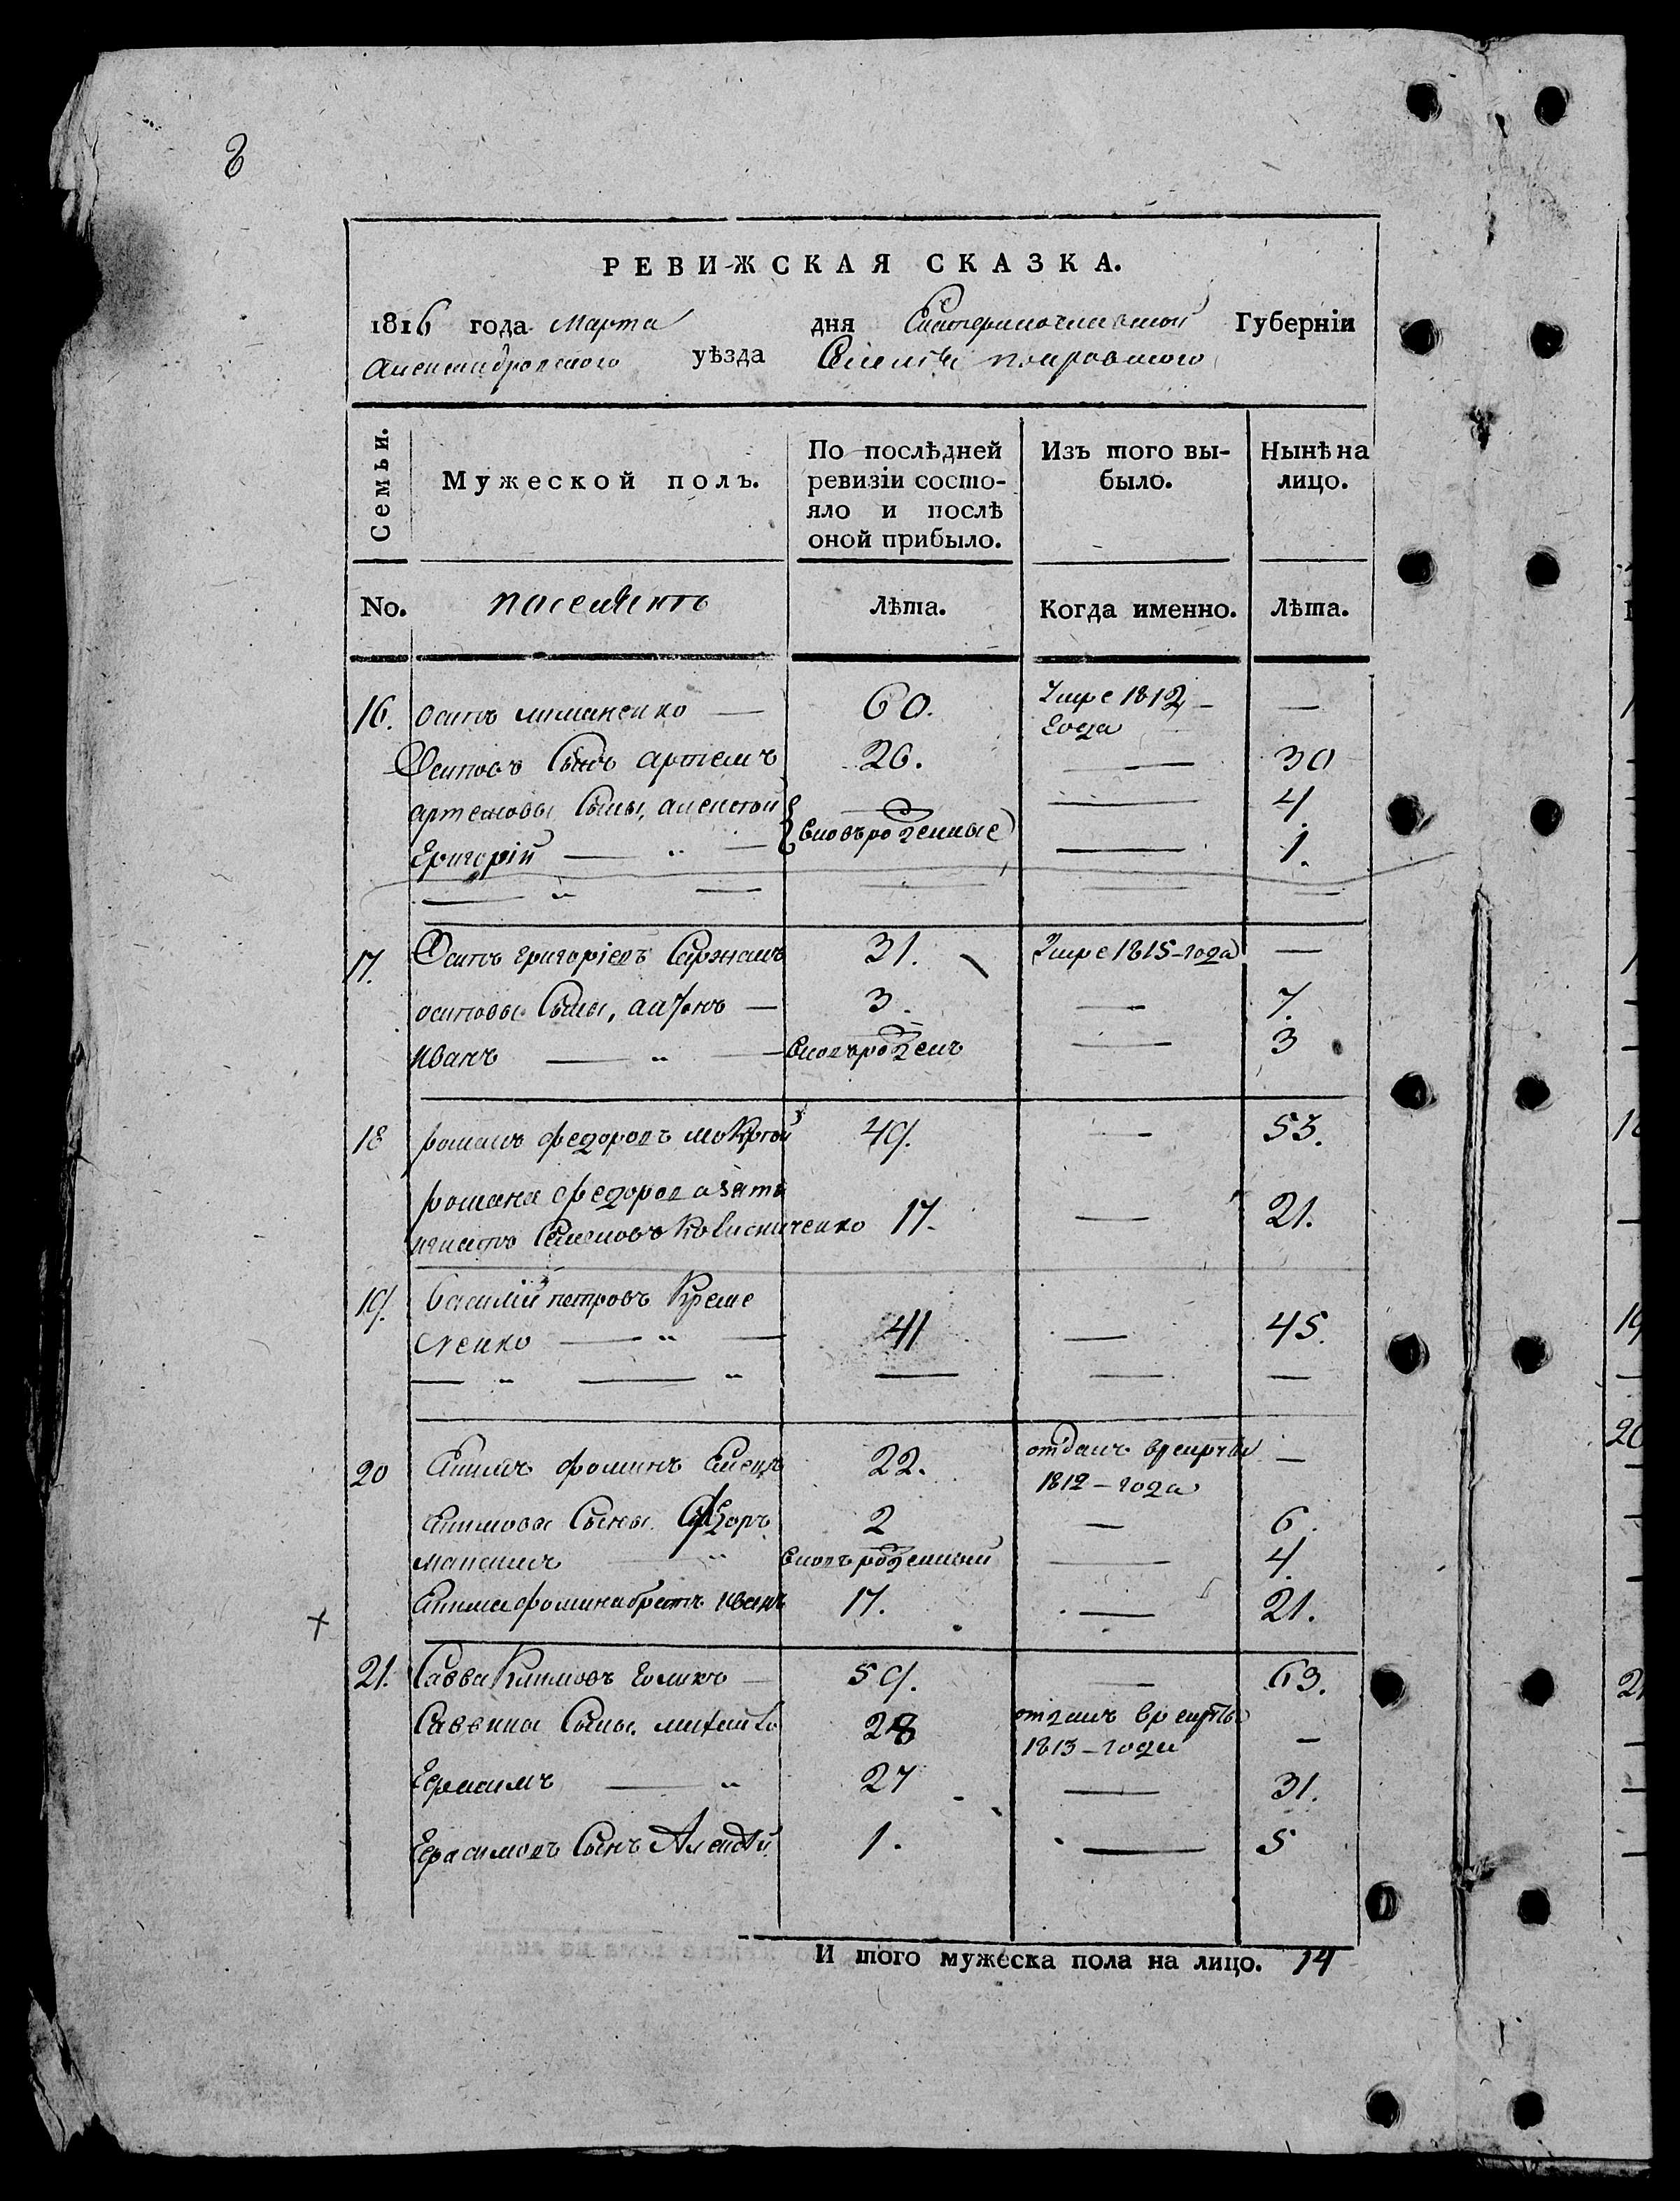 8
РЕВИЖСКАЯ СКАЗКА.
1816 года Марта дня Екатеринославской Губерніи
Александровского уѣзда Селенія покровского
Семьи. Мужеской полъ. По послѣдней ревизіи состояло и послѣ оной прибыло. Изъ того выбыло. Нынѣ на лицо.
No. Лѣта. Когда именно. Лѣта.
16. осипъ лиманенко — 60. Умре 1812 — года —
Осиповъ Сынъ артемъ 26. — 30
артемовы Сыны, алексей — 4.
Григорій — „ — вновьрожденные — 1.
17. Осипъ григоріевъ 31. Умре 1815-года —
осиповы Сыны, — 3. — 7.
иванъ — „ — вновьрожденъ — 3
18 романъ федоровъ мокрой 49. — 53.
романа федорова зять
Семеновъ 17. — 21.
19. Василій петровъ Креме
ненко — „ — 41 — 45.
20 Екимъ фоминъ 22. отданъ врекруты 1812-года —
Екимовы Сыны, 2 — 6.
максимъ „ вновьрожденный — 4.
Екима фомина братъ иванъ 17. — 21.
21. Савва Климовъ голикъ — 59. — 63.
Саввины Сыны, михайло 28 отданъ врекруты 1813-года —
Герасимъ — „ 27 — 31.
Герасимовъ Сынъ Алексей 1. — 5
И того мужеска пола на лицо. 14